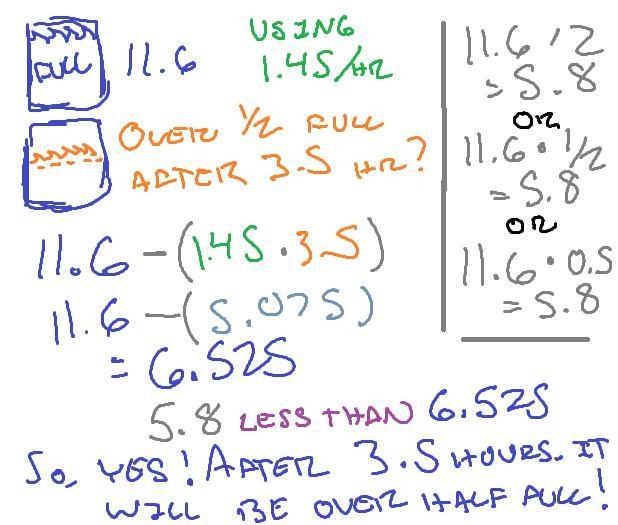 FULL
11.6
USING
1.45/HR
OVER 1/2 FULL
AFTER 3.5 HR?
11.6 - (1.45 · 3.5)
11.6 - (5.075)
= 6.525
5.8 LESS THAN 6.525
So, YES! AFTER 3.5 HOURS. IT
WILL BE OVER HALF FULL!
11.6 / 2
= 5.8
OR
11.6 · 1/2
= 5.8
OR
11.6 · 0.5
= 5.8